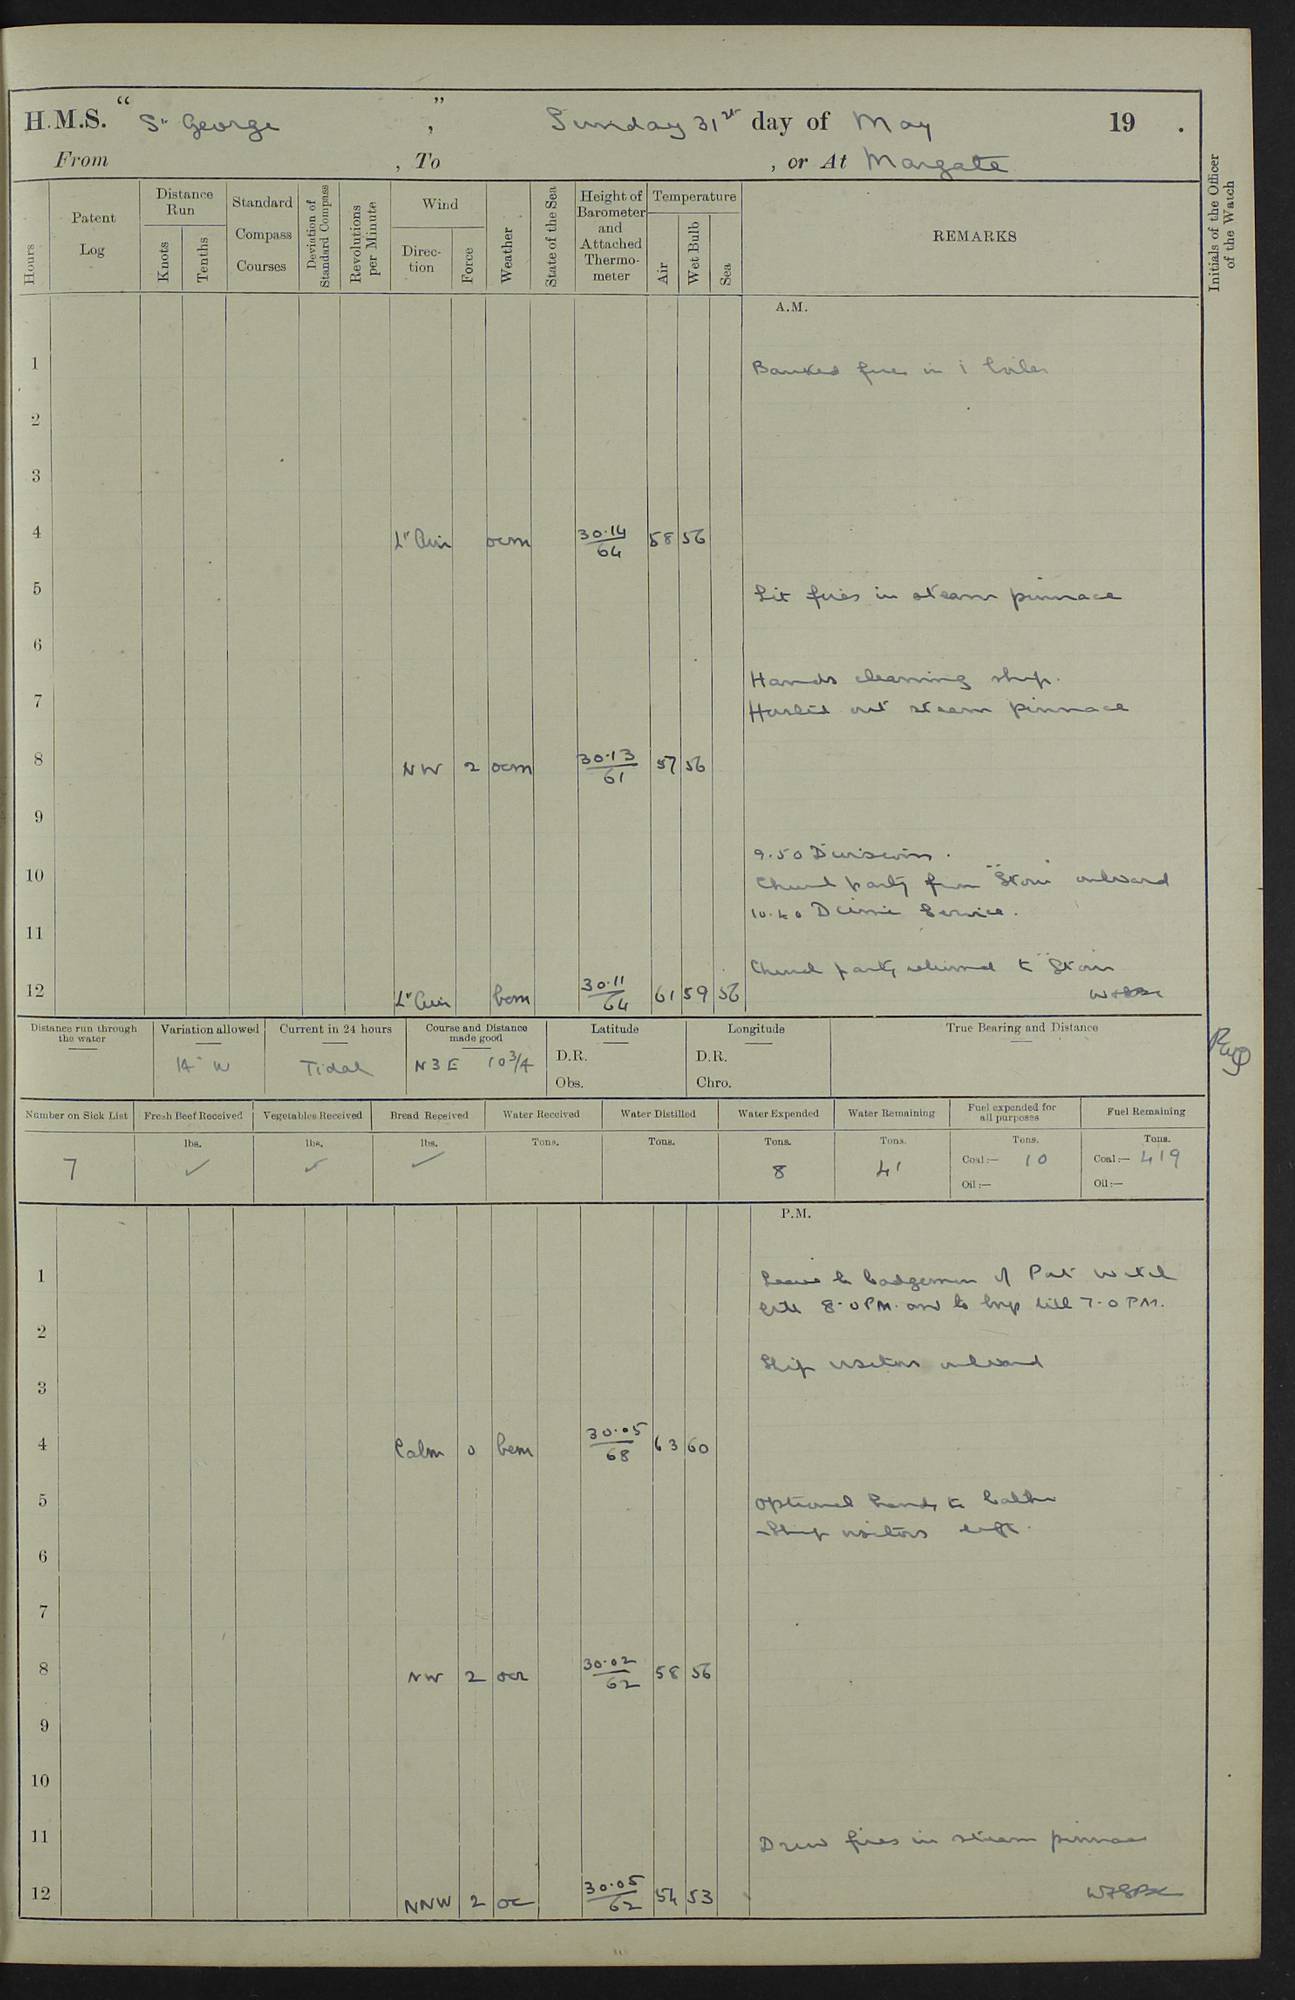 H.M.S. “ St George ” , Sunday 31st day of May 19 .
From , To , or At Margate
Hours
Patent Log
Distance Run
Knots
Tenths
Standard Compass Courses
Deviation of Standard Compass
Revolutions per Minute
Wind
Direction
Force
Weather
State of the Sea
Height of Barometer and Attached Thermometer
Temperature
Air
Wet Bulb
Sea
REMARKS
Initials of the Officer of the Watch
A.M.
1 Banked fires in 1 boiler
2
3
4 Lt Airs ocm 30.14/64 58 56
5 Lit fires in steam pinnace
6
Hands cleaning ship.
7 Hoisted out steam pinnace
8 NW 2 ocm 30.13/61 57 56
9
9.50 Divisions.
10 Church party from "Stour" onboard
10.40 Divine Service.
11
Church party returned to "Stour"
12 Lt Airs bcm 30.11/64 61 59 56
Distance run through the water
Variation allowed
Current in 24 hours
Course and Distance made good
Latitude
Longitude
True Bearing and Distance
14° W Tidal N 3 E 10 3/4
D.R. D.R.
Obs. Chro.
Number on Sick List
Fresh Beef Received
Vegetables Received
Bread Received
Water Received
Water Distilled
Water Expended
Water Remaining
Fuel expended for all purposes
Fuel Remaining
lbs. lbs. lbs. Tons. Tons. Tons. Tons. Tons. Tons.
7 ✓ ✓ ✓ 8 41 Coal:— 10 Coal:— 419
Oil:— Oil:—
P.M.
1 Leave to badgemen of Port Watch
till 8.0 PM. and to boys till 7.0 PM.
2
Ship visitors onboard
3
4 Calm 0 bcm 30.05/68 63 60
5 Optional hands to bathe
Ship visitors left.
6
7
8 NW 2 ocr 30.02/62 58 56
9
10
11 Drew fires in steam pinnace
12 NNW 2 oc 30.05/62 54 53